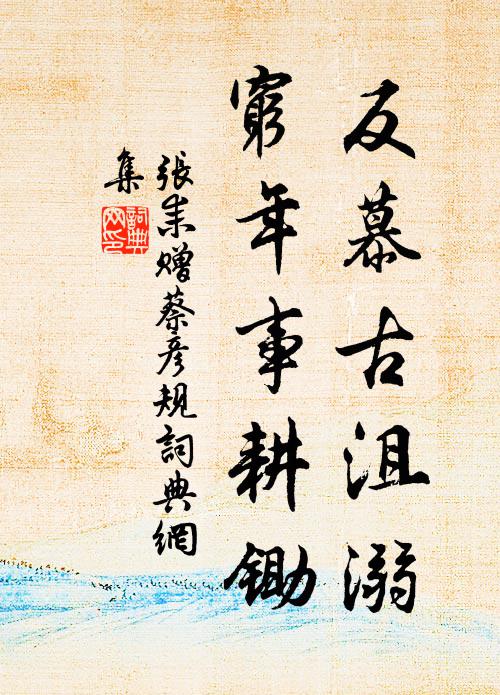 反慕古沮溺
窮年事耕鋤
張耒贈蔡彦規詞典網
集
詞典
网印